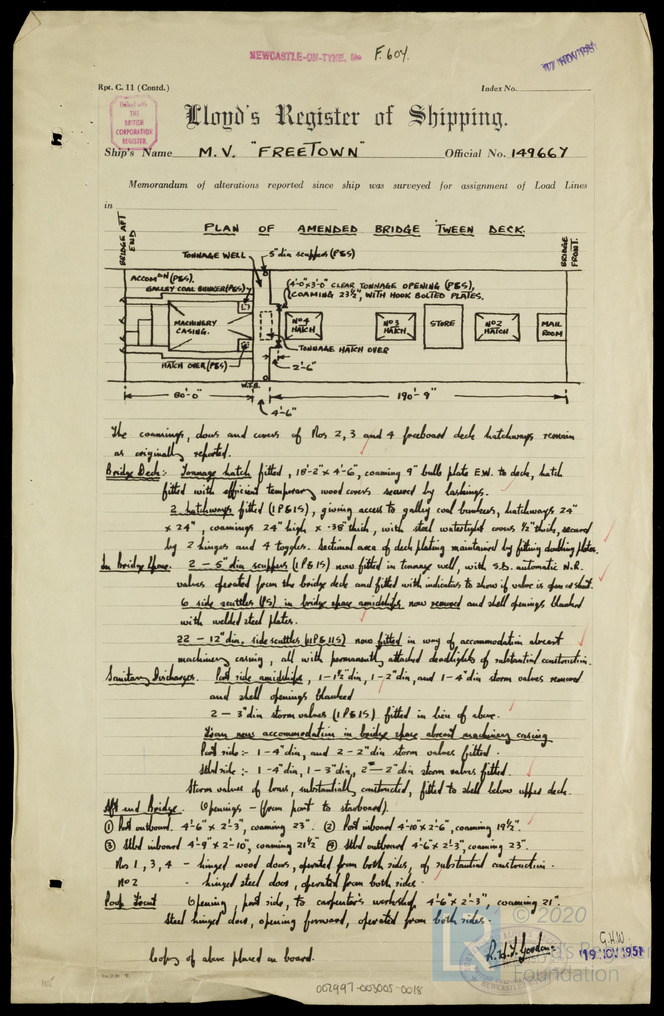 NEWCASTLE-ON-TYNE. No F.604.
17 NOV 1951
Rpt. C. 11 (Contd.)
Index No.
United with
THE
BRITISH
CORPORATION
REGISTER.
Lloyd's Register of Shipping.
Ship's Name M.V. "FREETOWN" Official No. 149667
Memorandum of alterations reported since ship was surveyed for assignment of Load Lines
in
PLAN OF AMENDED BRIDGE 'TWEEN DECK.
BRIDGE AFT END
BRIDGE FRONT.
TONNAGE WELL
5" dia scuppers (P&S)
ACCOMDN (P&S).
GALLEY COAL BUNKER (P&S)
4'-0" x 3'-0" CLEAR TONNAGE OPENING (P&S),
COAMING 23½", WITH HOOK BOLTED PLATES.
MACHINERY CASING.
No4 HATCH
No3 HATCH
STORE
No2 HATCH
MAIL ROOM
TONNAGE HATCH OVER
HATCH OVER (P&S)
2'-6"
W.T.B.
80'-0"
190'-9"
4'-6"
The coamings, doors and covers of Nos 2, 3 and 4 freeboard deck hatchways remain
as originally reported.
Bridge Deck:- Tonnage hatch fitted, 18'-2" x 4'-6", coaming 9" bulb plate E.W. to deck, hatch
fitted with efficient temporary wood covers secured by lashings.
2 hatchways fitted (1P&1S), giving access to galley coal bunkers, hatchways 24"
x 24", coamings 24" high x .38" thick, with steel watertight covers ½" thick, secured
by 2 hinges and 4 toggles. Sectional area of deck plating maintained by fitting doubling plates.
In Bridge Space. 2 - 5" dia. scuppers (1P&1S) now fitted in tonnage well, with S.D. automatic N.R.
valves operated from the bridge deck and fitted with indicators to show if valve is open or shut.
6 side scuttles (PS) in bridge space amidships now removed and shell openings blanked
with welded steel plates.
22 - 12" dia. side scuttles (11P&11S) now fitted in way of accommodation abreast
machinery casing, all with permanently attached deadlights of substantial construction.
Sanitary Discharges. Port side amidships, 1-1½" dia, 1-2" dia, and 1-4" dia storm valves removed
and shell openings blanked
2 - 3" dia storm valves (1P&1S) fitted in lieu of above.
From new accommodation in bridge space abreast machinery casing
Port side:- 1-4" dia, and 2-2" dia storm valves fitted.
Stbd side:- 1-4" dia, 1-3" dia, 2-2" dia storm valves fitted.
Storm valves of brass, substantially constructed, fitted to shell below upper deck.
Aft end Bridge. Openings - (from port to starboard).
(1) Port outboard. 4'-6" x 2'-3", coaming 23". (2) Port inboard 4'-10" x 2'-6", coaming 19½".
(3) Stbd inboard 4'-9" x 2'-10", coaming 21½" (4) Stbd outboard 4'-6" x 2'-3", coaming 23".
Nos 1, 3, 4 - hinged wood doors, operated from both sides, of substantial construction.
No 2 - hinged steel door, operated from both sides.
Poop Front Opening, port side, to carpenter's workshop, 4'-6" x 2'-3", coaming 21".
Steel hinged door, opening forward, operated from both sides.
Copy of above placed on board.
G.H.W.
19 NOV 1951
© 2020
Lloyd's Register
Foundation
002997-003005-0018